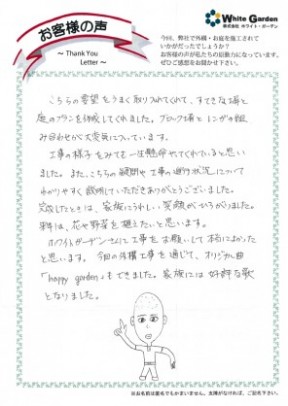 White Garden
株式会社 ホワイト・ガーデン
お客様の声
～ Thank You
Letter ～
今回、弊社で外構・お庭を施工されて
いかがだったでしょうか？
お客様の声が私たちの原動力になっています。
ぜひご感想をお聞かせ下さい。
こちらの要望をうまく取り入れてくれて、すてきな塀と
庭のプランを作成してくれました。ブロック塀とレンガの組
み合わせが大変気に入っています。
工事の様子をみても一生懸命やってくれていると思い
ました。また、こちらの疑問や工事の進行状況について
わかりやすく説明していただきありがとうございました。
完成したときは、家族にうれしい笑顔がひろがりました。
は、花や野菜を植えたいと思います。
ホワイトガーデンさんに工事をお願いして本当によかった
と思います。今回の外構工事を通じて、オリジナル曲
「happy garden」もできました。家族には好評な歌
となりました。
※お名前は匿名でもかまいません。支障がなければ、ご記名下さい。